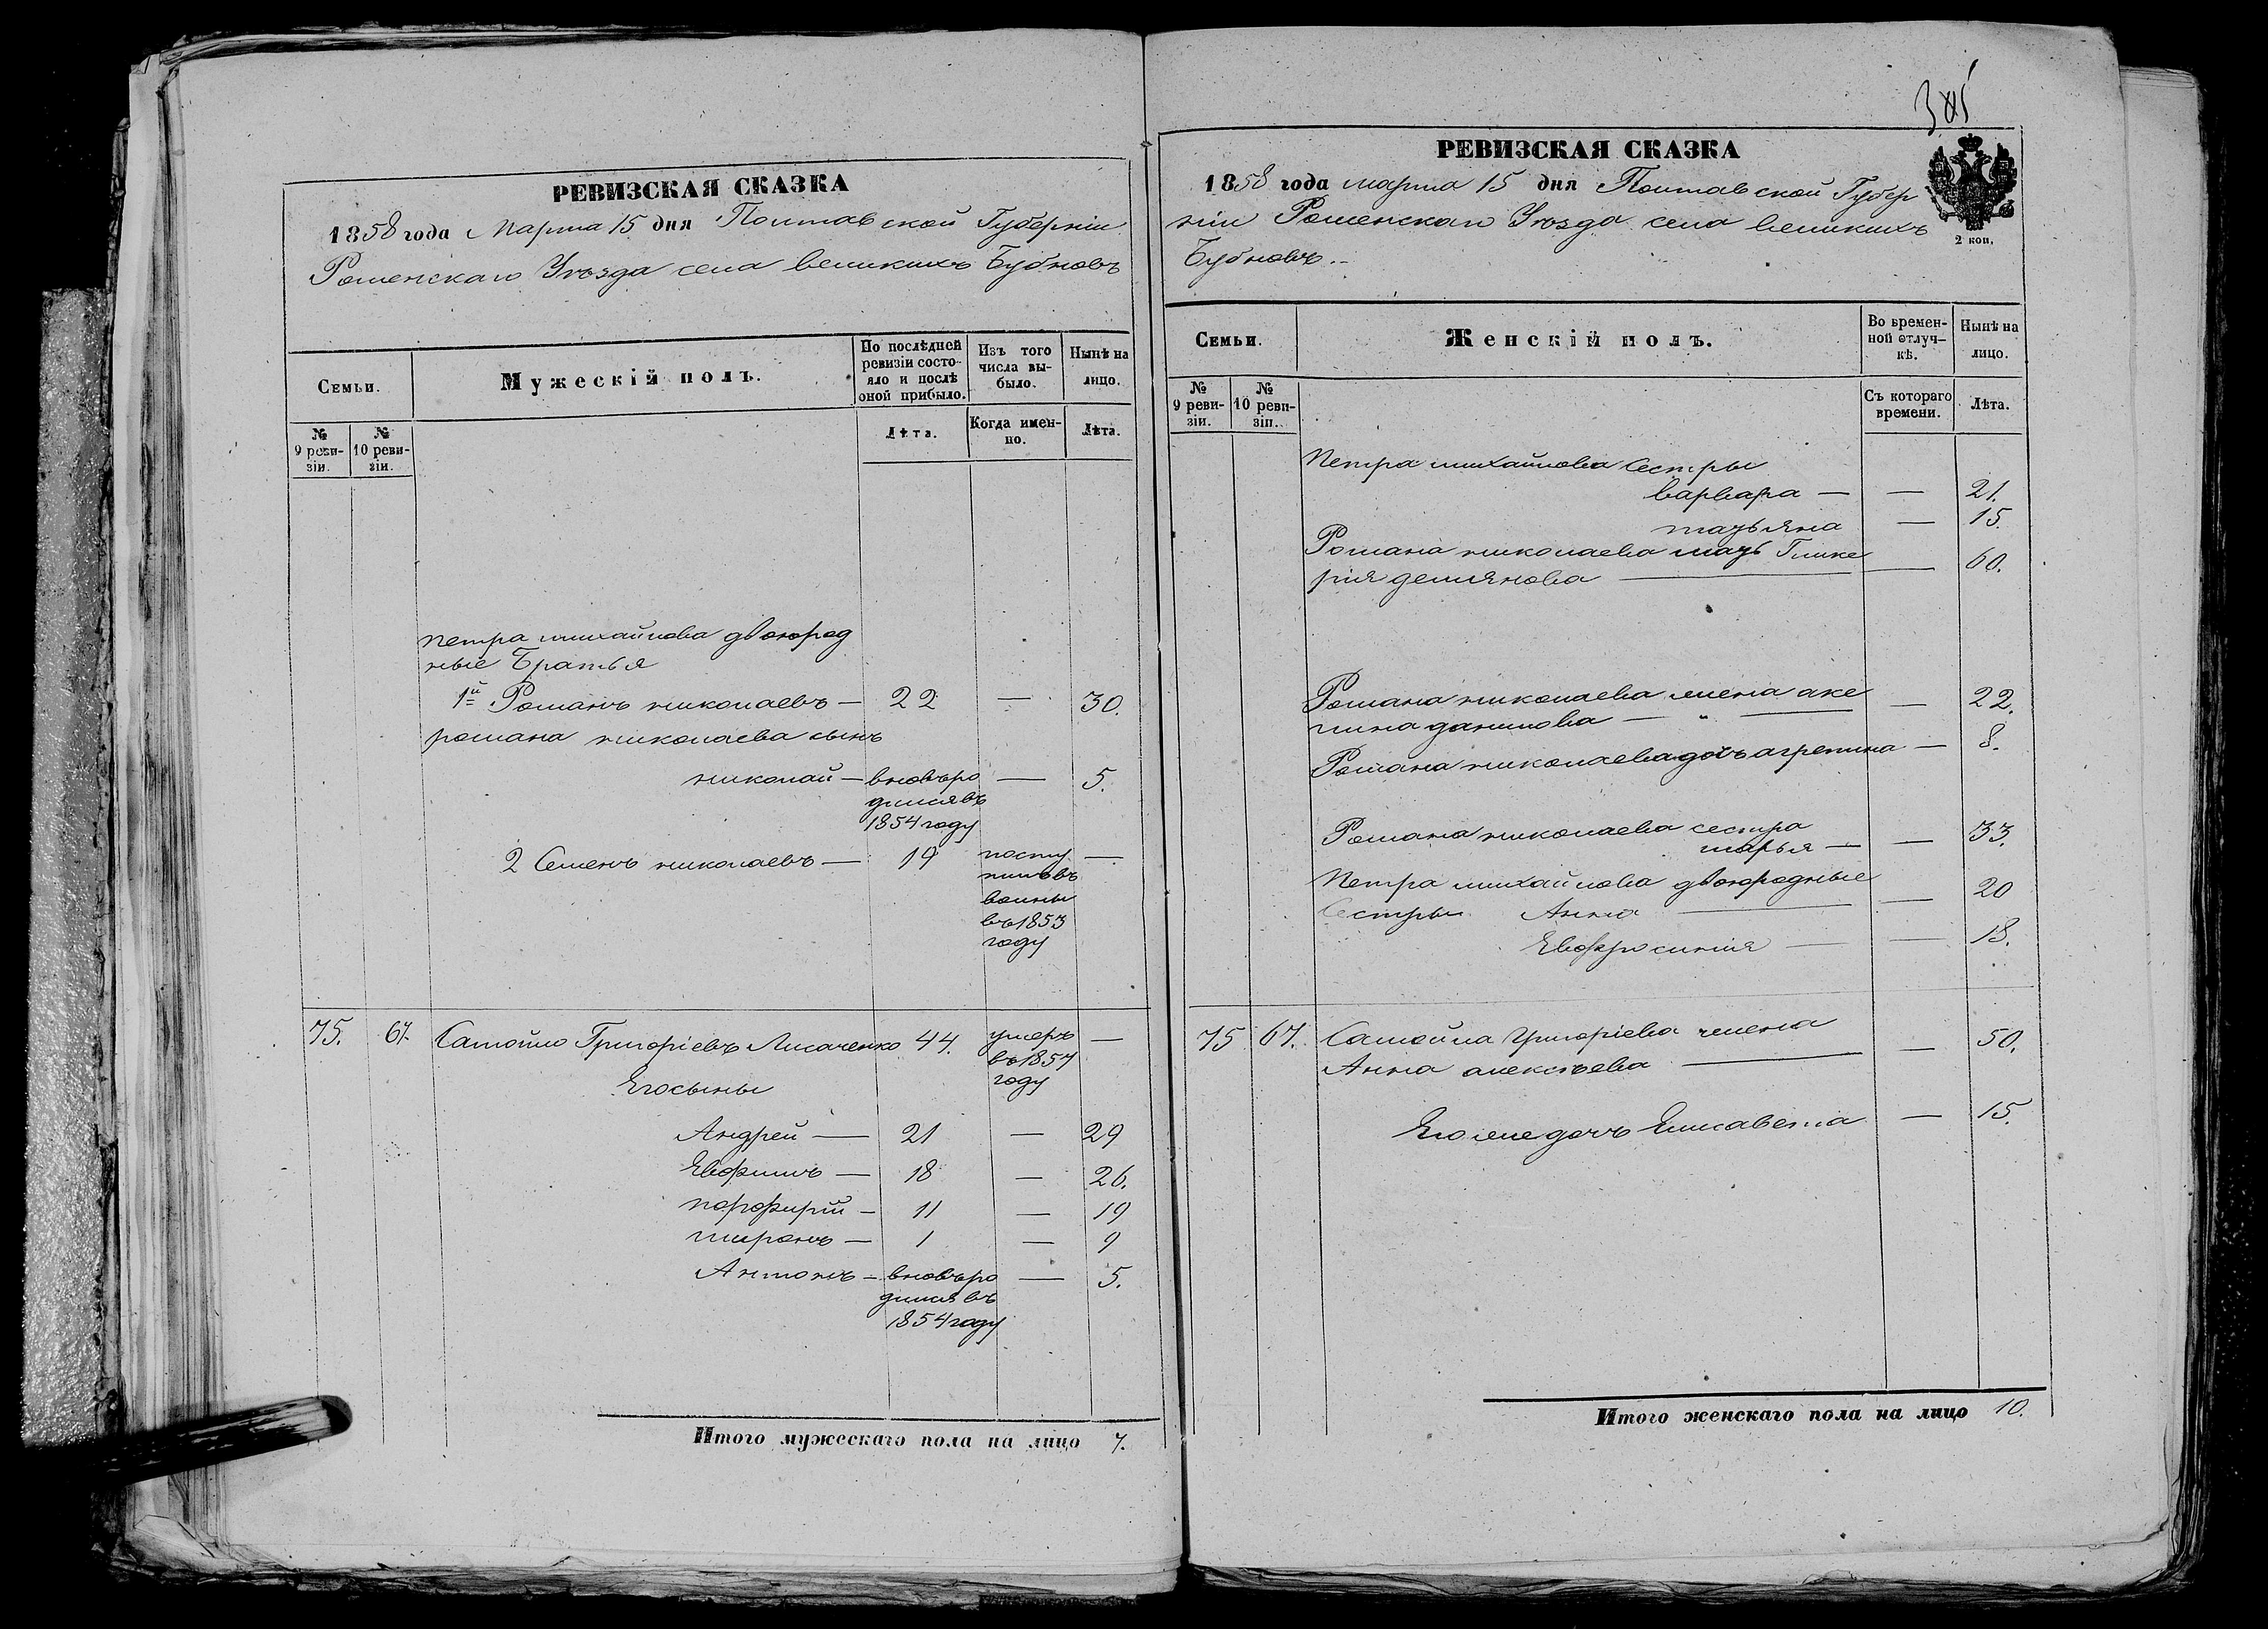 РЕВИЗСКАЯ СКАЗКА
1858 года Марта 15 дня Полтавской Губерніи
Роменскаго Уѣзда села великихъ Бубновъ
Семьи.
Мужескій полъ.
По послѣдней ревизіи состояло и послѣ оной прибыло.
Изъ того числа выбыло.
Нынѣ на лицо.
№ 9 ревизіи.
№ 10 ревизіи.
Лѣта.
Когда именно.
Лѣта.
петра михайлова двоюрод
ные Братья
1й Романъ николаевъ — 22 — 30.
романа николаева сынъ
николай — вновь ро — 5.
дился въ
1854 году
2 Семенъ николаевъ — 19 посту —
пилъ въ
воины
въ 1853
году
75. 67. Самойло Григоріевъ Лисаченко 44. умеръ —
въ 1857
году
Его сыны
Андрей — 21 — 29
Евфимъ — 18 — 26.
порфирій — 11 — 19
миронъ — 1 — 9
Антонъ — вновь ро — 5.
дился въ
1854 году
Итого мужескаго пола на лицо 7.
РЕВИЗСКАЯ СКАЗКА
1858 года марта 15 дня Полтавской Губер
ніи Роменскаго Уѣзда села великихъ
Бубновъ.
2 коп.
Семьи.
Женскій полъ.
Во временной отлучкѣ.
Нынѣ на лицо.
№ 9 ревизіи.
№ 10 ревизіи.
Съ котораго времени.
Лѣта.
Петра михайлова Сестры
варвара — — 21.
татьяна — 15.
Романа николаева мать Глике
рия демянова — — 60.
Романа николаева жена аку
лина данилова — — 22.
Романа николаева дочь агрепина — 8.
Романа николаева сестра
марья — — 33.
Петра михайлова двоюродные
Сестры Анна — — 20
Евфросинія — — 18.
75 67. Самойла Григоріева жена
Анна алексѣева — — 50.
Его же дочь Елисавета — 15.
Итого женскаго пола на лицо 10.